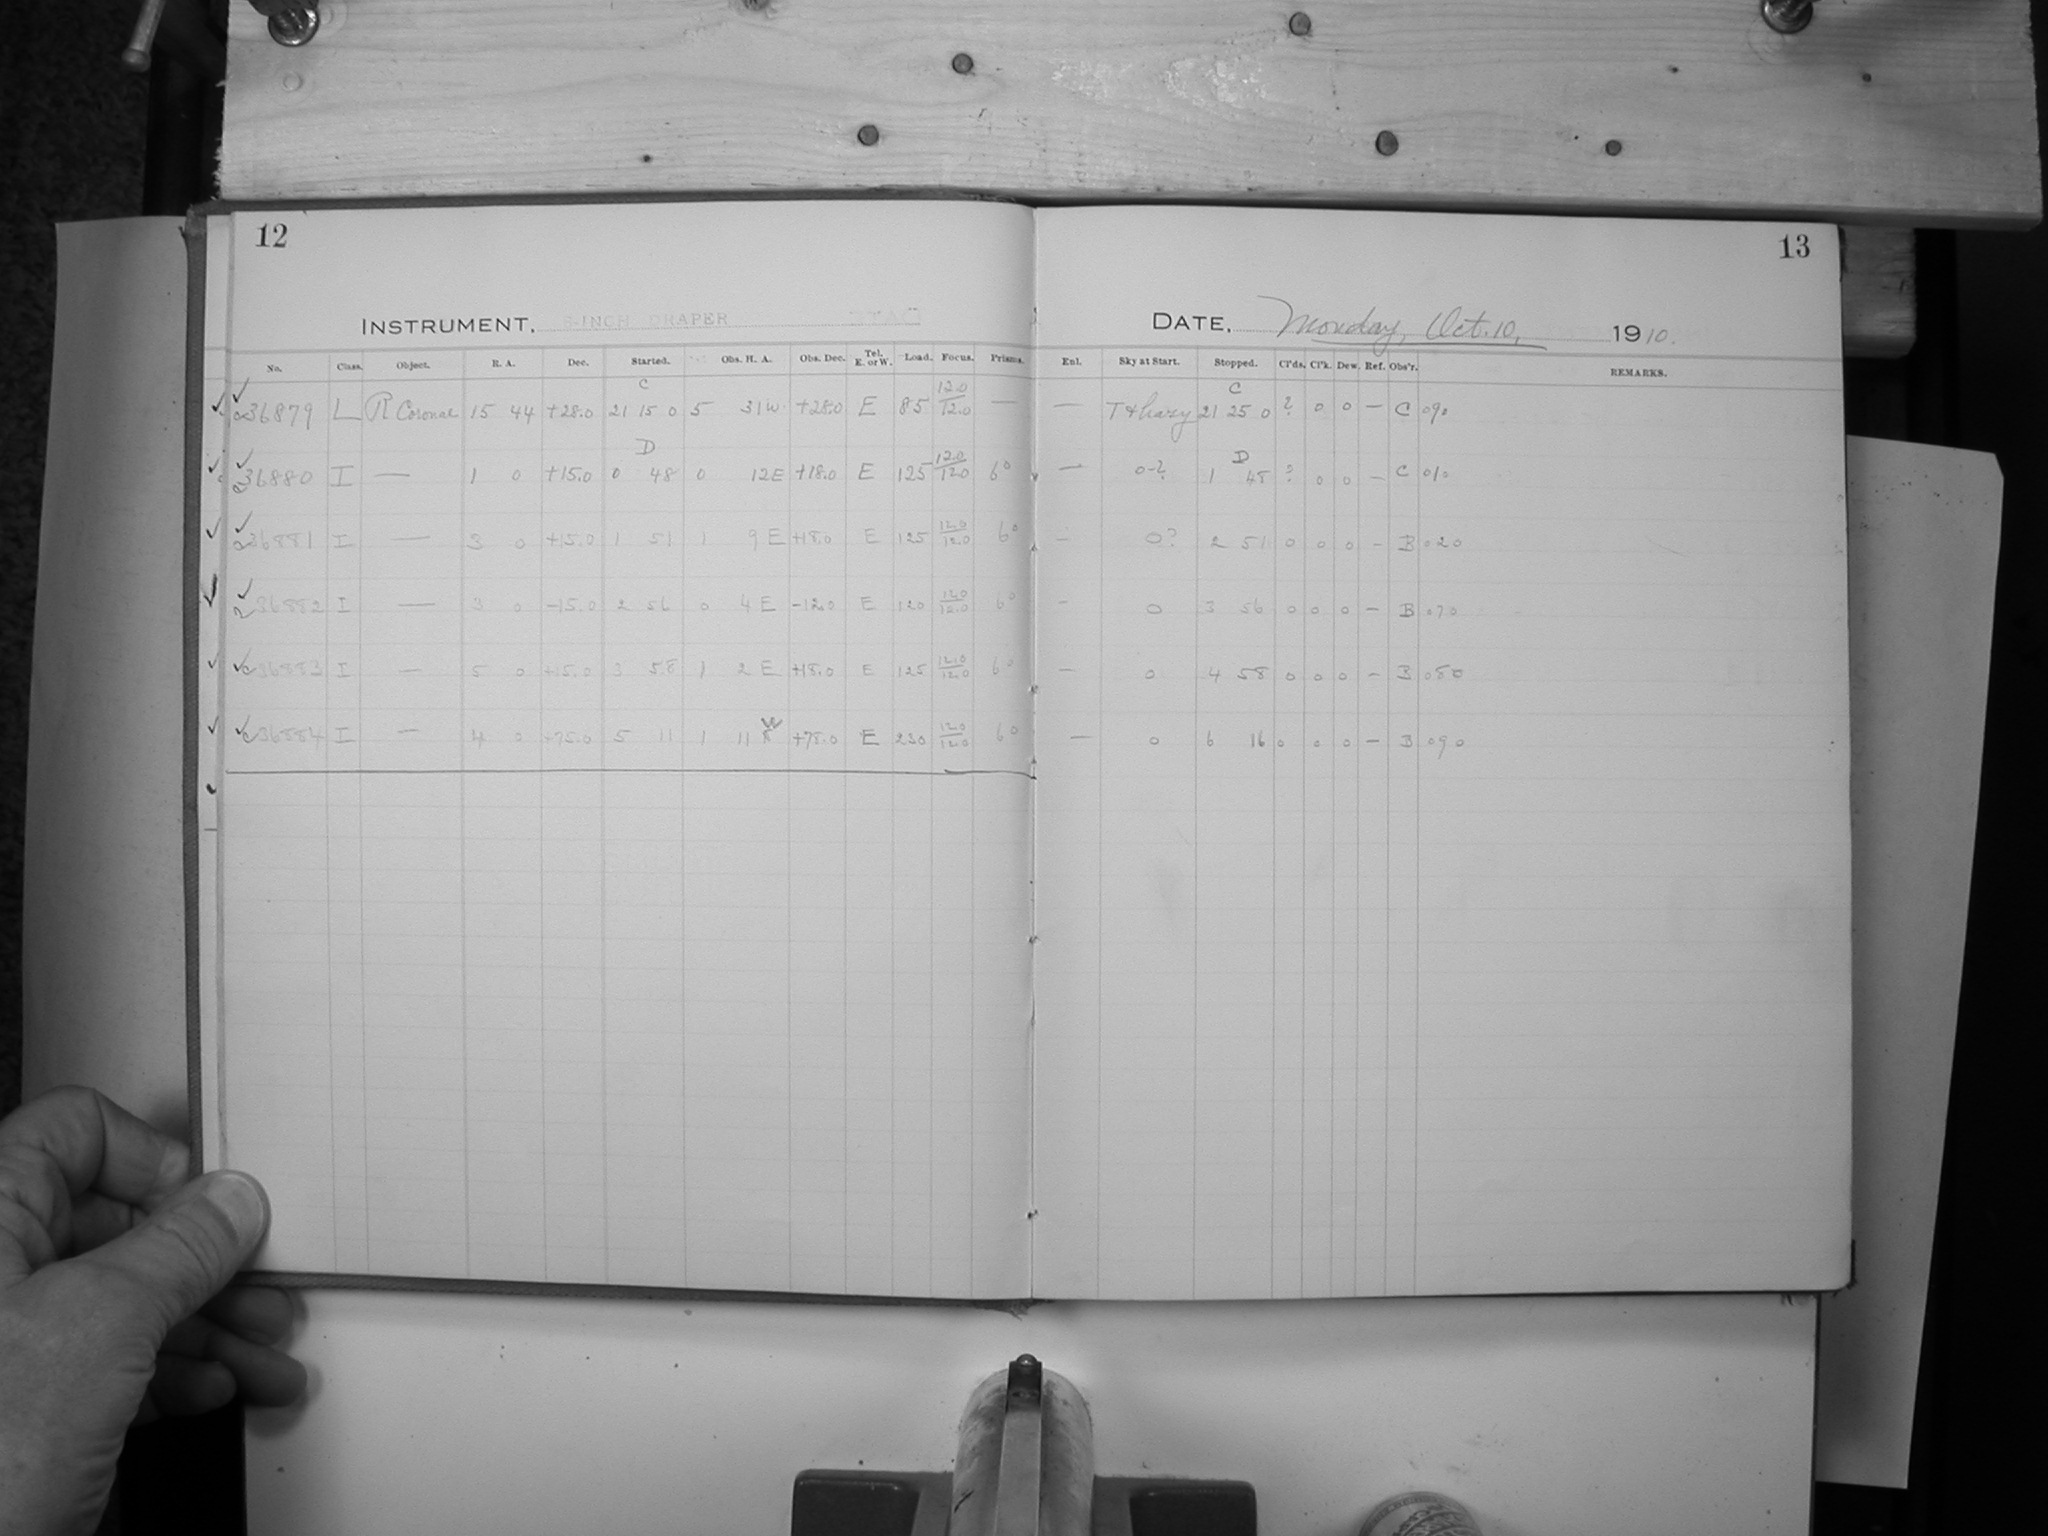 12
13
INSTRUMENT, 8-INCH DRAPER
DATE, Monday, Oct. 10, 1910.
No. Class. Object. R. A. Dec. Started. Obs. H. A. Obs. Dec. Tel. E. or W. Load. Focus. Prisms. Enl. Sky at Start. Stopped. Cl'ds. Cl'k. Dew. Ref. Obs'r. REMARKS.
C C
36879 L R Coronae 15 44 +28.0 21 15 0 5 31 W +28.0 E 85 12.0/12.0 — — T & hazy 21 25 0 ? 0 0 – C 090
D D
36880 I — 1 0 +15.0 0 48 0 12 E +18.0 E 125 12.0/12.0 6° — 0-? 1 45 ? 0 0 – C 010
36881 I — 3 0 +15.0 1 51 1 9 E +18.0 E 125 12.0/12.0 6° – 0? 2 51 0 0 0 – B 020
36882 I — 3 0 –15.0 2 56 0 4 E –12.0 E 120 12.0/12.0 6° – 0 3 56 0 0 0 – B 070
36883 I — 5 0 +15.0 3 58 1 2 E +18.0 E 125 12.0/12.0 6° – 0 4 58 0 0 0 – B 080
36884 I — 4 0 +75.0 5 11 1 11 W +78.0 E 230 12.0/12.0 6° — 0 6 16 0 0 0 – B 090